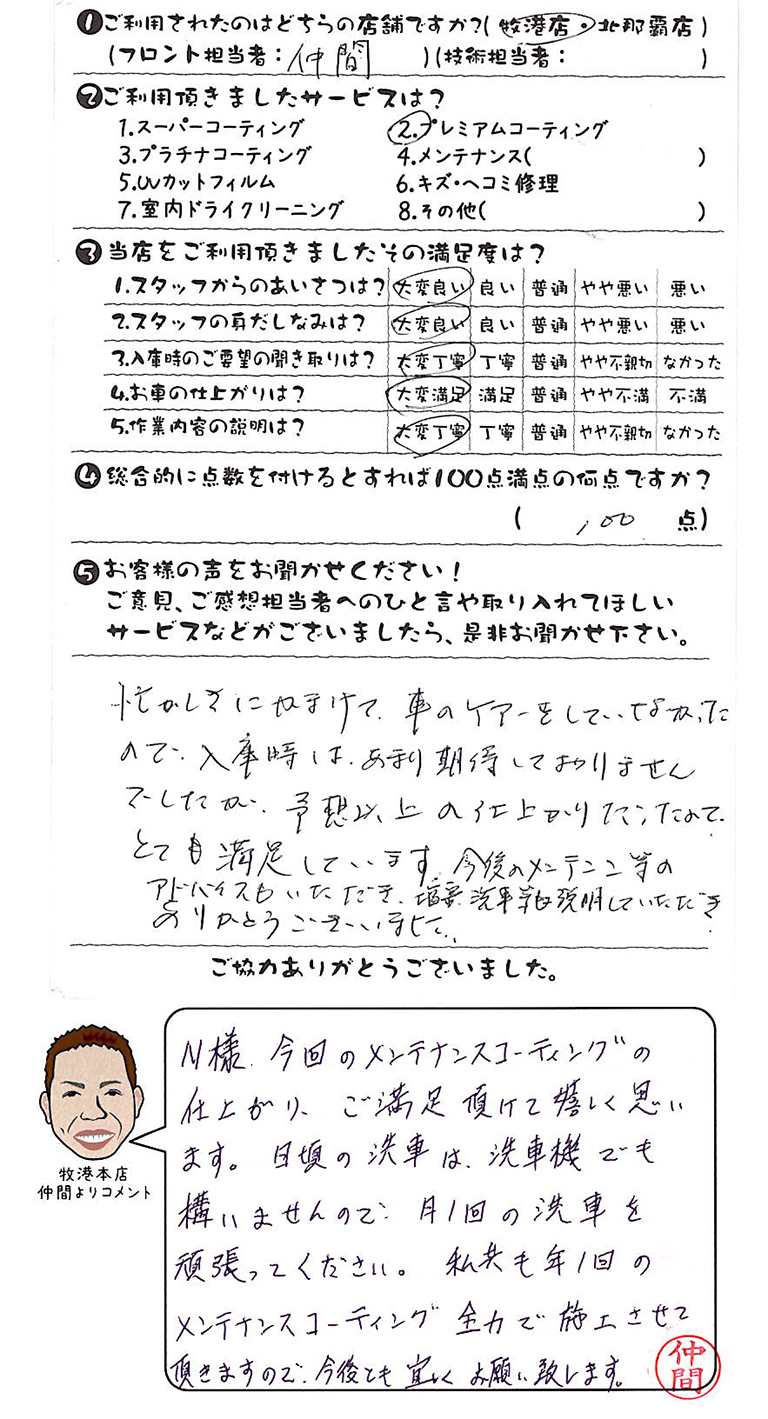 ❶ご利用されたのはどちらの店舗ですか?(牧港店・北那覇店)
(フロント担当者:仲間 )(技術担当者: )
❷ご利用頂きましたサービスは?
1.スーパーコーティング 2.プレミアムコーティング
3.プラチナコーティング 4.メンテナンス( )
5.UVカットフィルム 6.キズ・ヘコミ修理
7.室内ドライクリーニング 8.その他( )
❸当店をご利用頂きましたその満足度は?
1.スタッフからのあいさつは? 大変良い 良い 普通 やや悪い 悪い
2.スタッフの身だしなみは? 大変良い 良い 普通 やや悪い 悪い
3.入庫時のご要望の聞き取りは? 大変丁寧 丁寧 普通 やや不親切 なかった
4.お車の仕上がりは? 大変満足 満足 普通 やや不満 不満
5.作業内容の説明は? 大変丁寧 丁寧 普通 やや不親切 なかった
❹総合的に点数を付けるとすれば100点満点の何点ですか?
( 100 点)
❺お客様の声をお聞かせください!
ご意見、ご感想担当者へのひと言や取り入れてほしい
サービスなどがございましたら、是非お聞かせ下さい。
忙かしさにかまけて、車のケアーをしていなかった
ので、入庫時は、あまり期待しておりません
でしたが、予想以上の仕上がりだったので、
とても満足しています。今後のメンテナンス等の
アドバイスもいただき、洗車等も説明していただき
ありがとうございました。
ご協力ありがとうございました。
N様、今回のメンテナンスコーティングの
仕上がり、ご満足頂けて嬉しく思い
ます。日頃の洗車は、洗車機でも
構いませんので、月1回の洗車を
頑張ってください。私共も年1回の
メンテナンスコーティング全力で施工させて
頂きますので、今後とも宜しくお願い致します。
仲間
牧港本店
仲間よりコメント